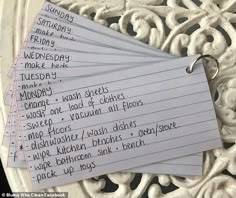 SUNDAY
SATURDAY
make beds
FRIDAY
make be
WEDNESDAY
make beds
TUESDAY
make beds
MONDAY
change + wash sheets
wash one load of clothes
sweep + vacuum all floors
mop floors
dishwasher / wash dishes
wipe kitchen benches + oven/stove
wipe bathroom sink + bench
pack up toys
© Mums Who Clean/Facebook